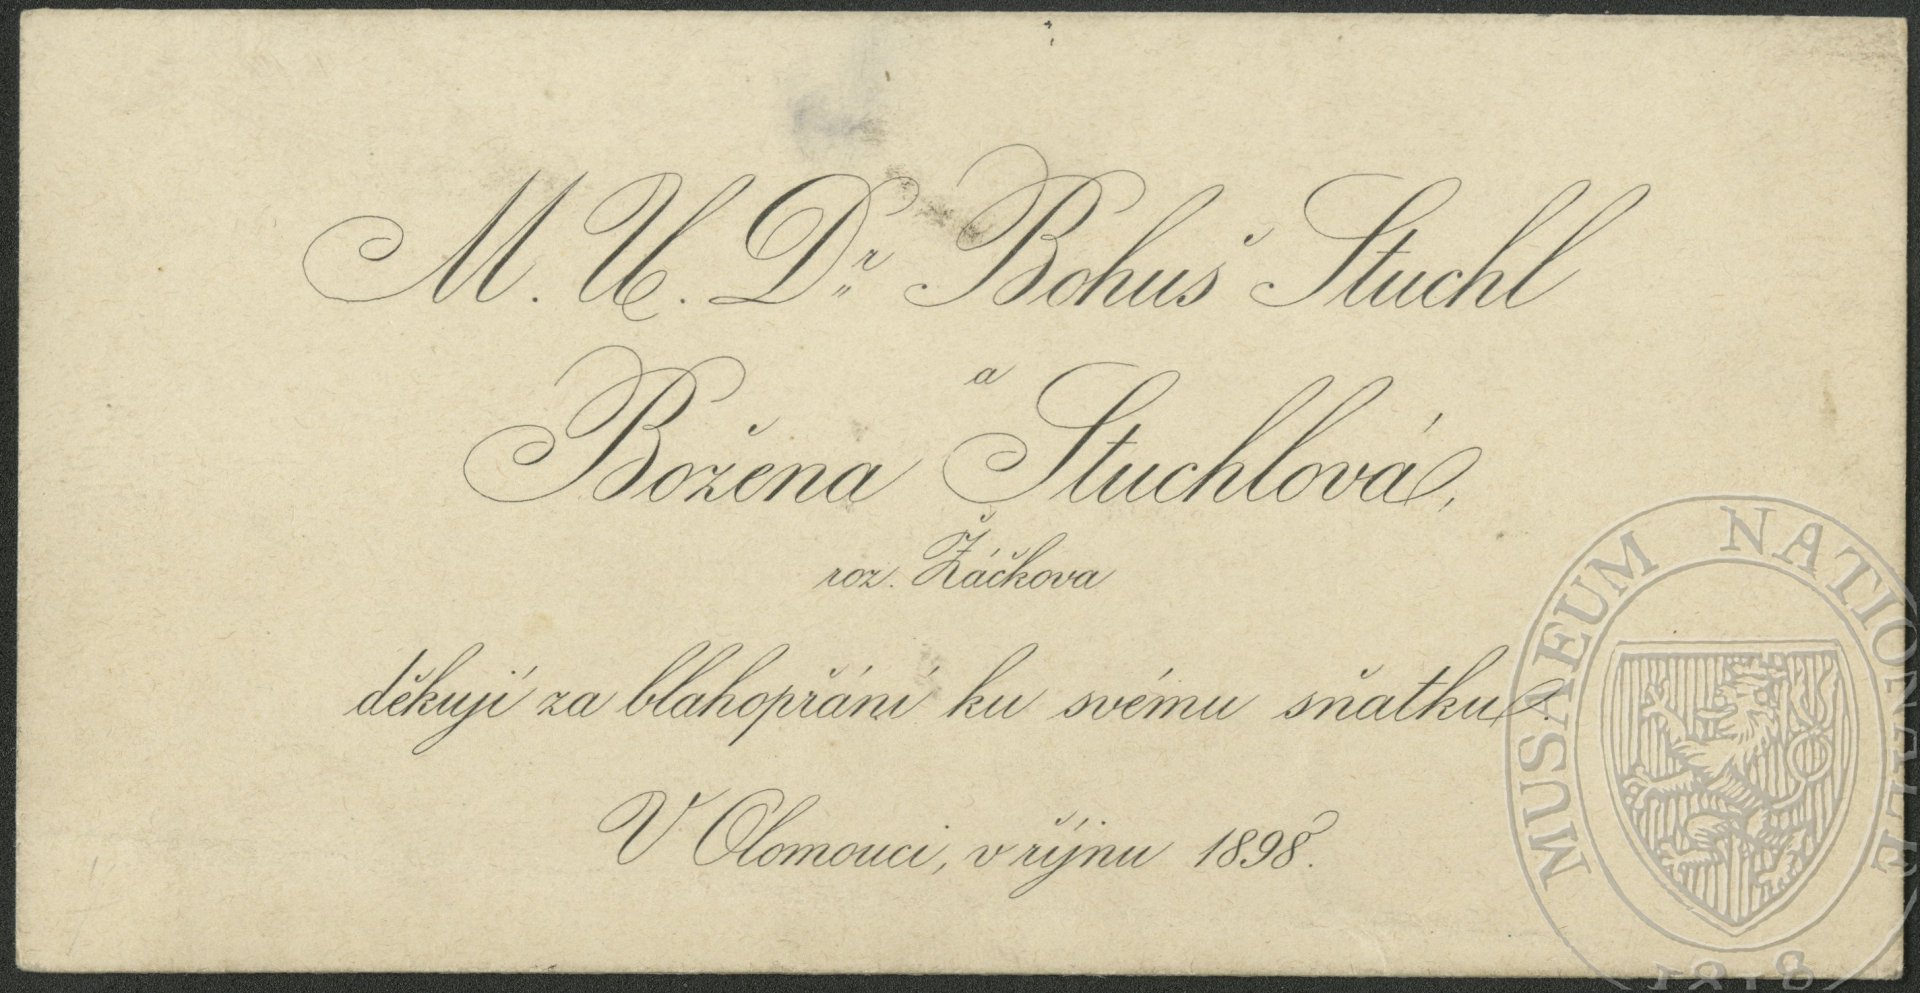 M. U. Dr. Bohuš Stuchl
a
Božena Stuchlová,
roz. Žáčkova
děkují za blahopřání ku svému sňatku.
V Olomouci, v říjnu 1898.
MUSAEUM NATIONALE
1818